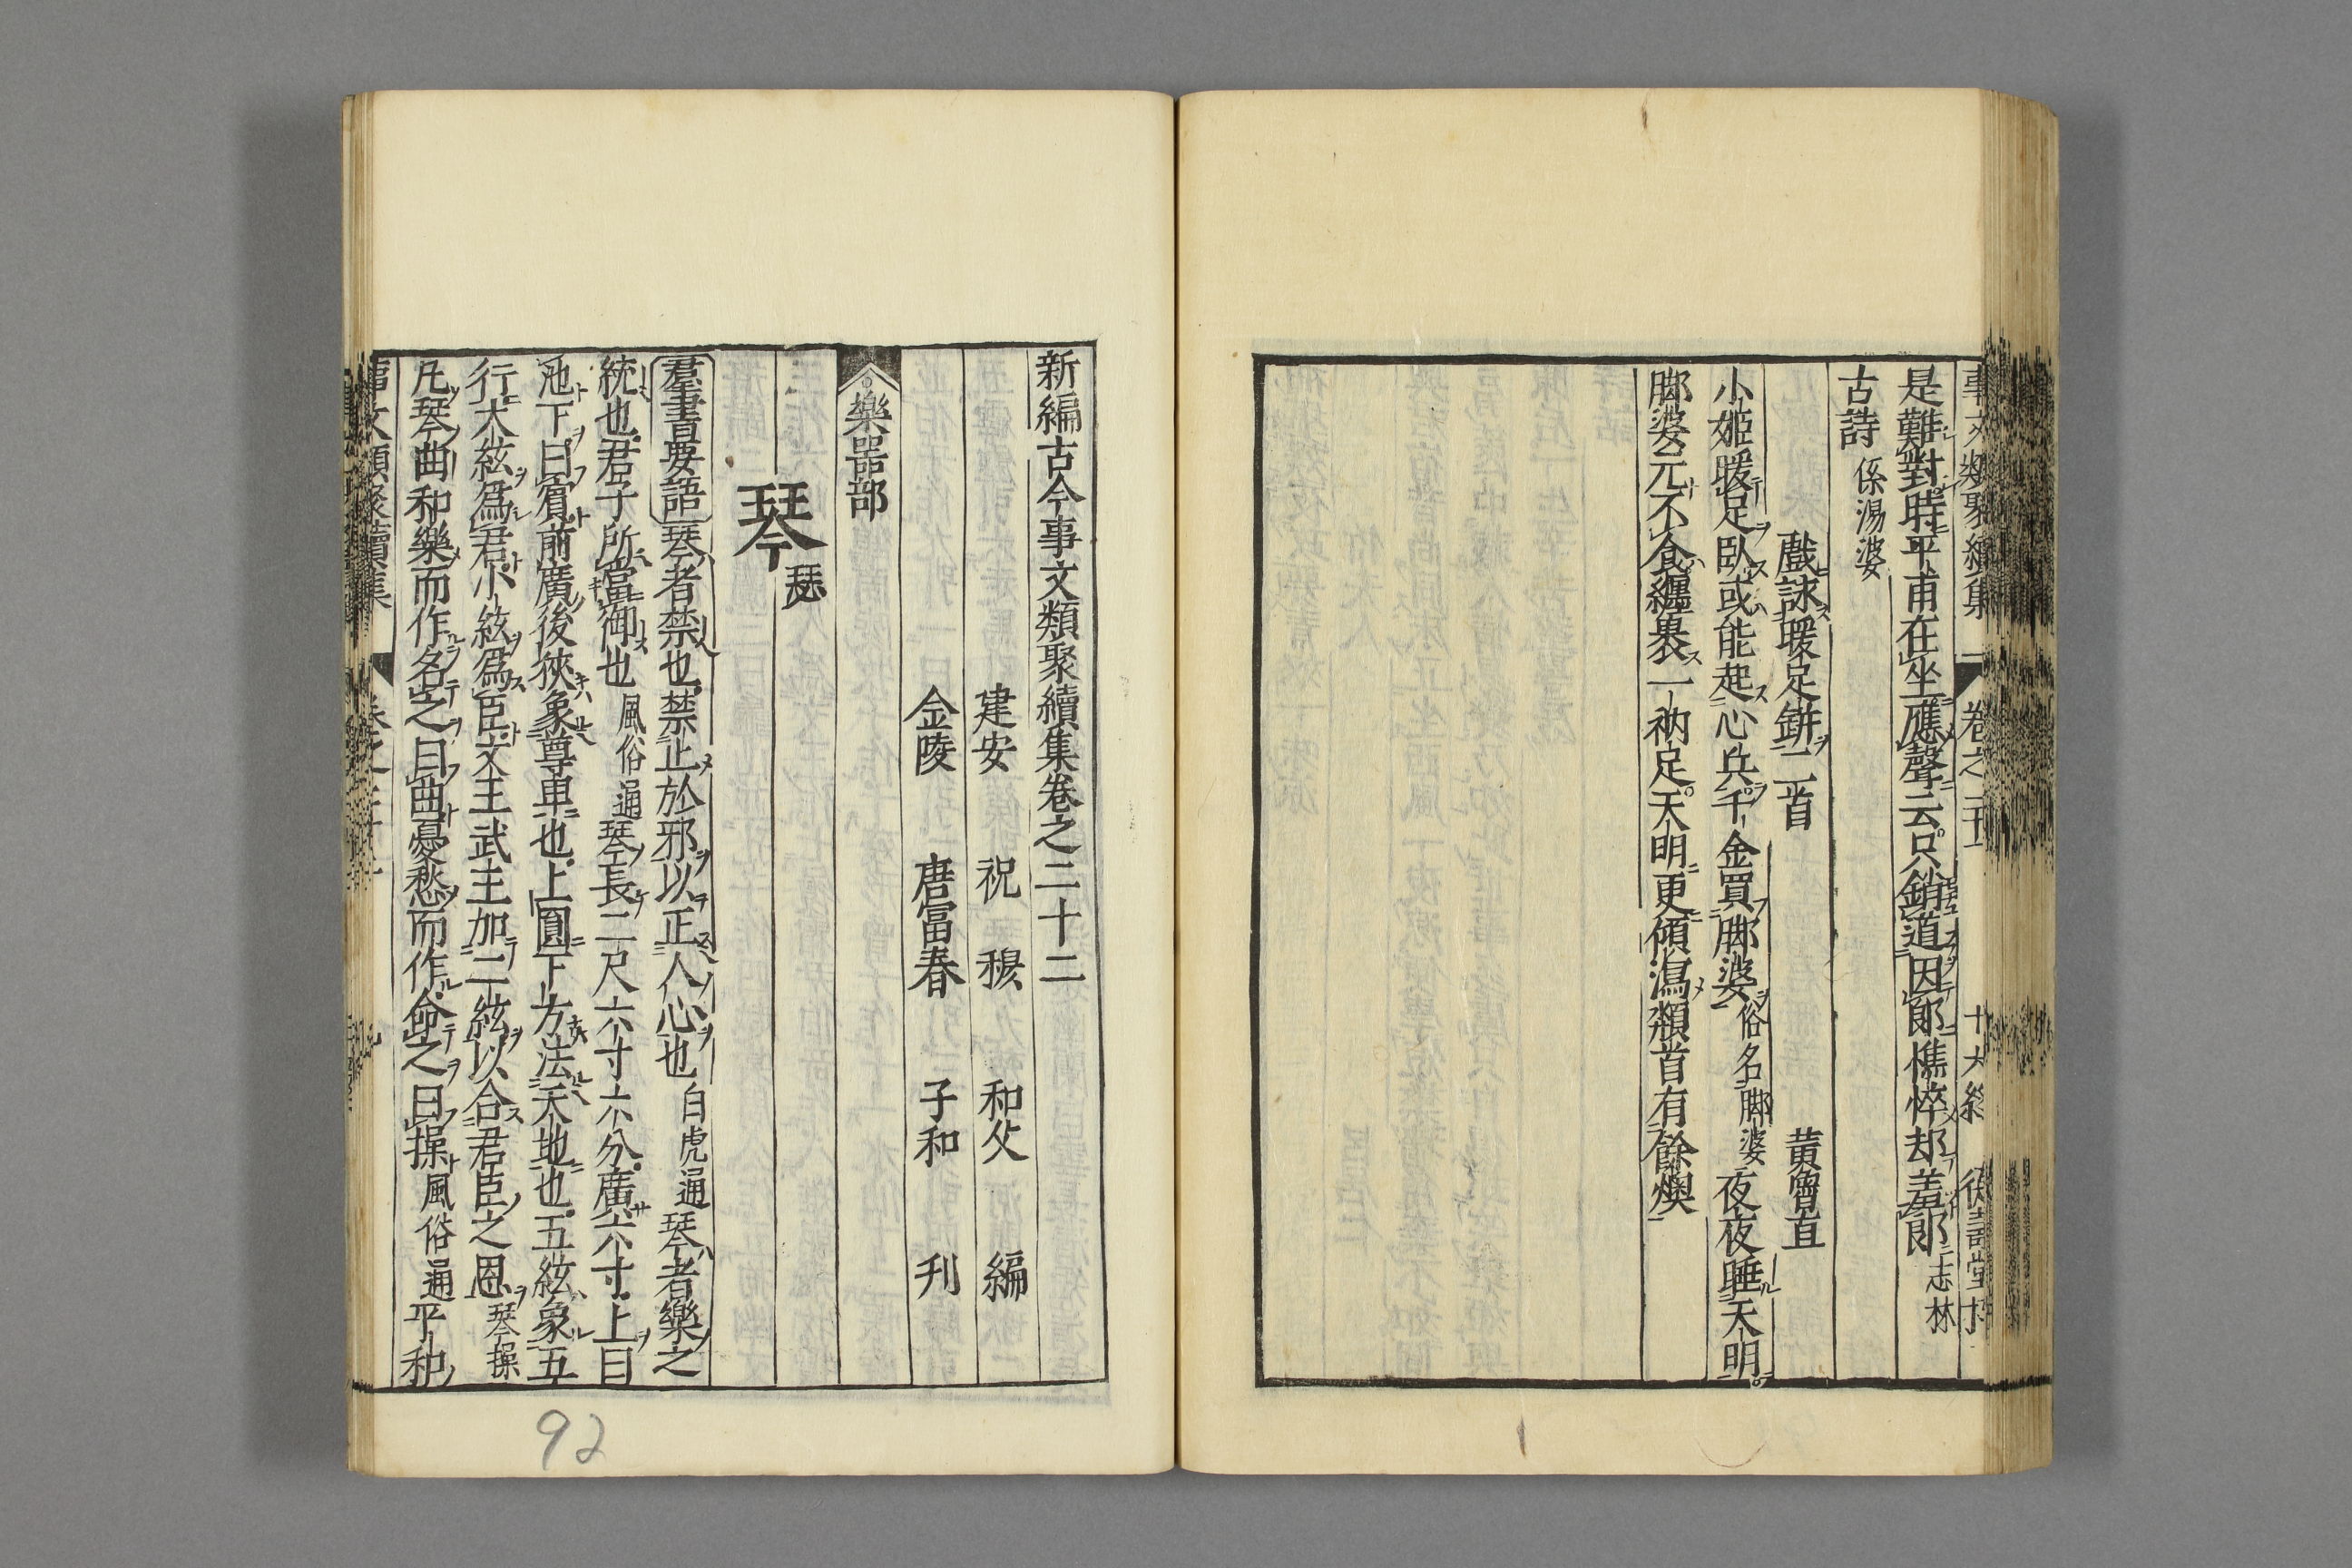 是難對時平甫在坐應聲云只銷道因郎憔悴却羞郎志林
古詩 係湯婆
戲詠暖足缾二首 黃魯直
小姬暖足臥或能起心兵千金買脚婆俗名脚婆夜夜睡天明
脚婆元不食纏裹一衲足天明更傾瀉頮首有餘燠
新編古今事文類聚續集卷之二十二
建安 祝 穆 和父 編
金陵 唐富春 子和 刋
樂器部
琴 瑟
羣書要語 琴者禁也禁止於邪以正人心也白虎通琴者樂之
統也君子所當御也風俗通琴長三尺六寸六分廣六寸上曰
池下曰濱前廣後狹象尊卑也上圓下方法天地也五絃象五
行大絃爲君小絃爲臣文王武王加二絃以合君臣之恩琴操
凡琴曲和樂而作名之曰曲憂愁而作命之曰操風俗通平和
事文類聚續集
92